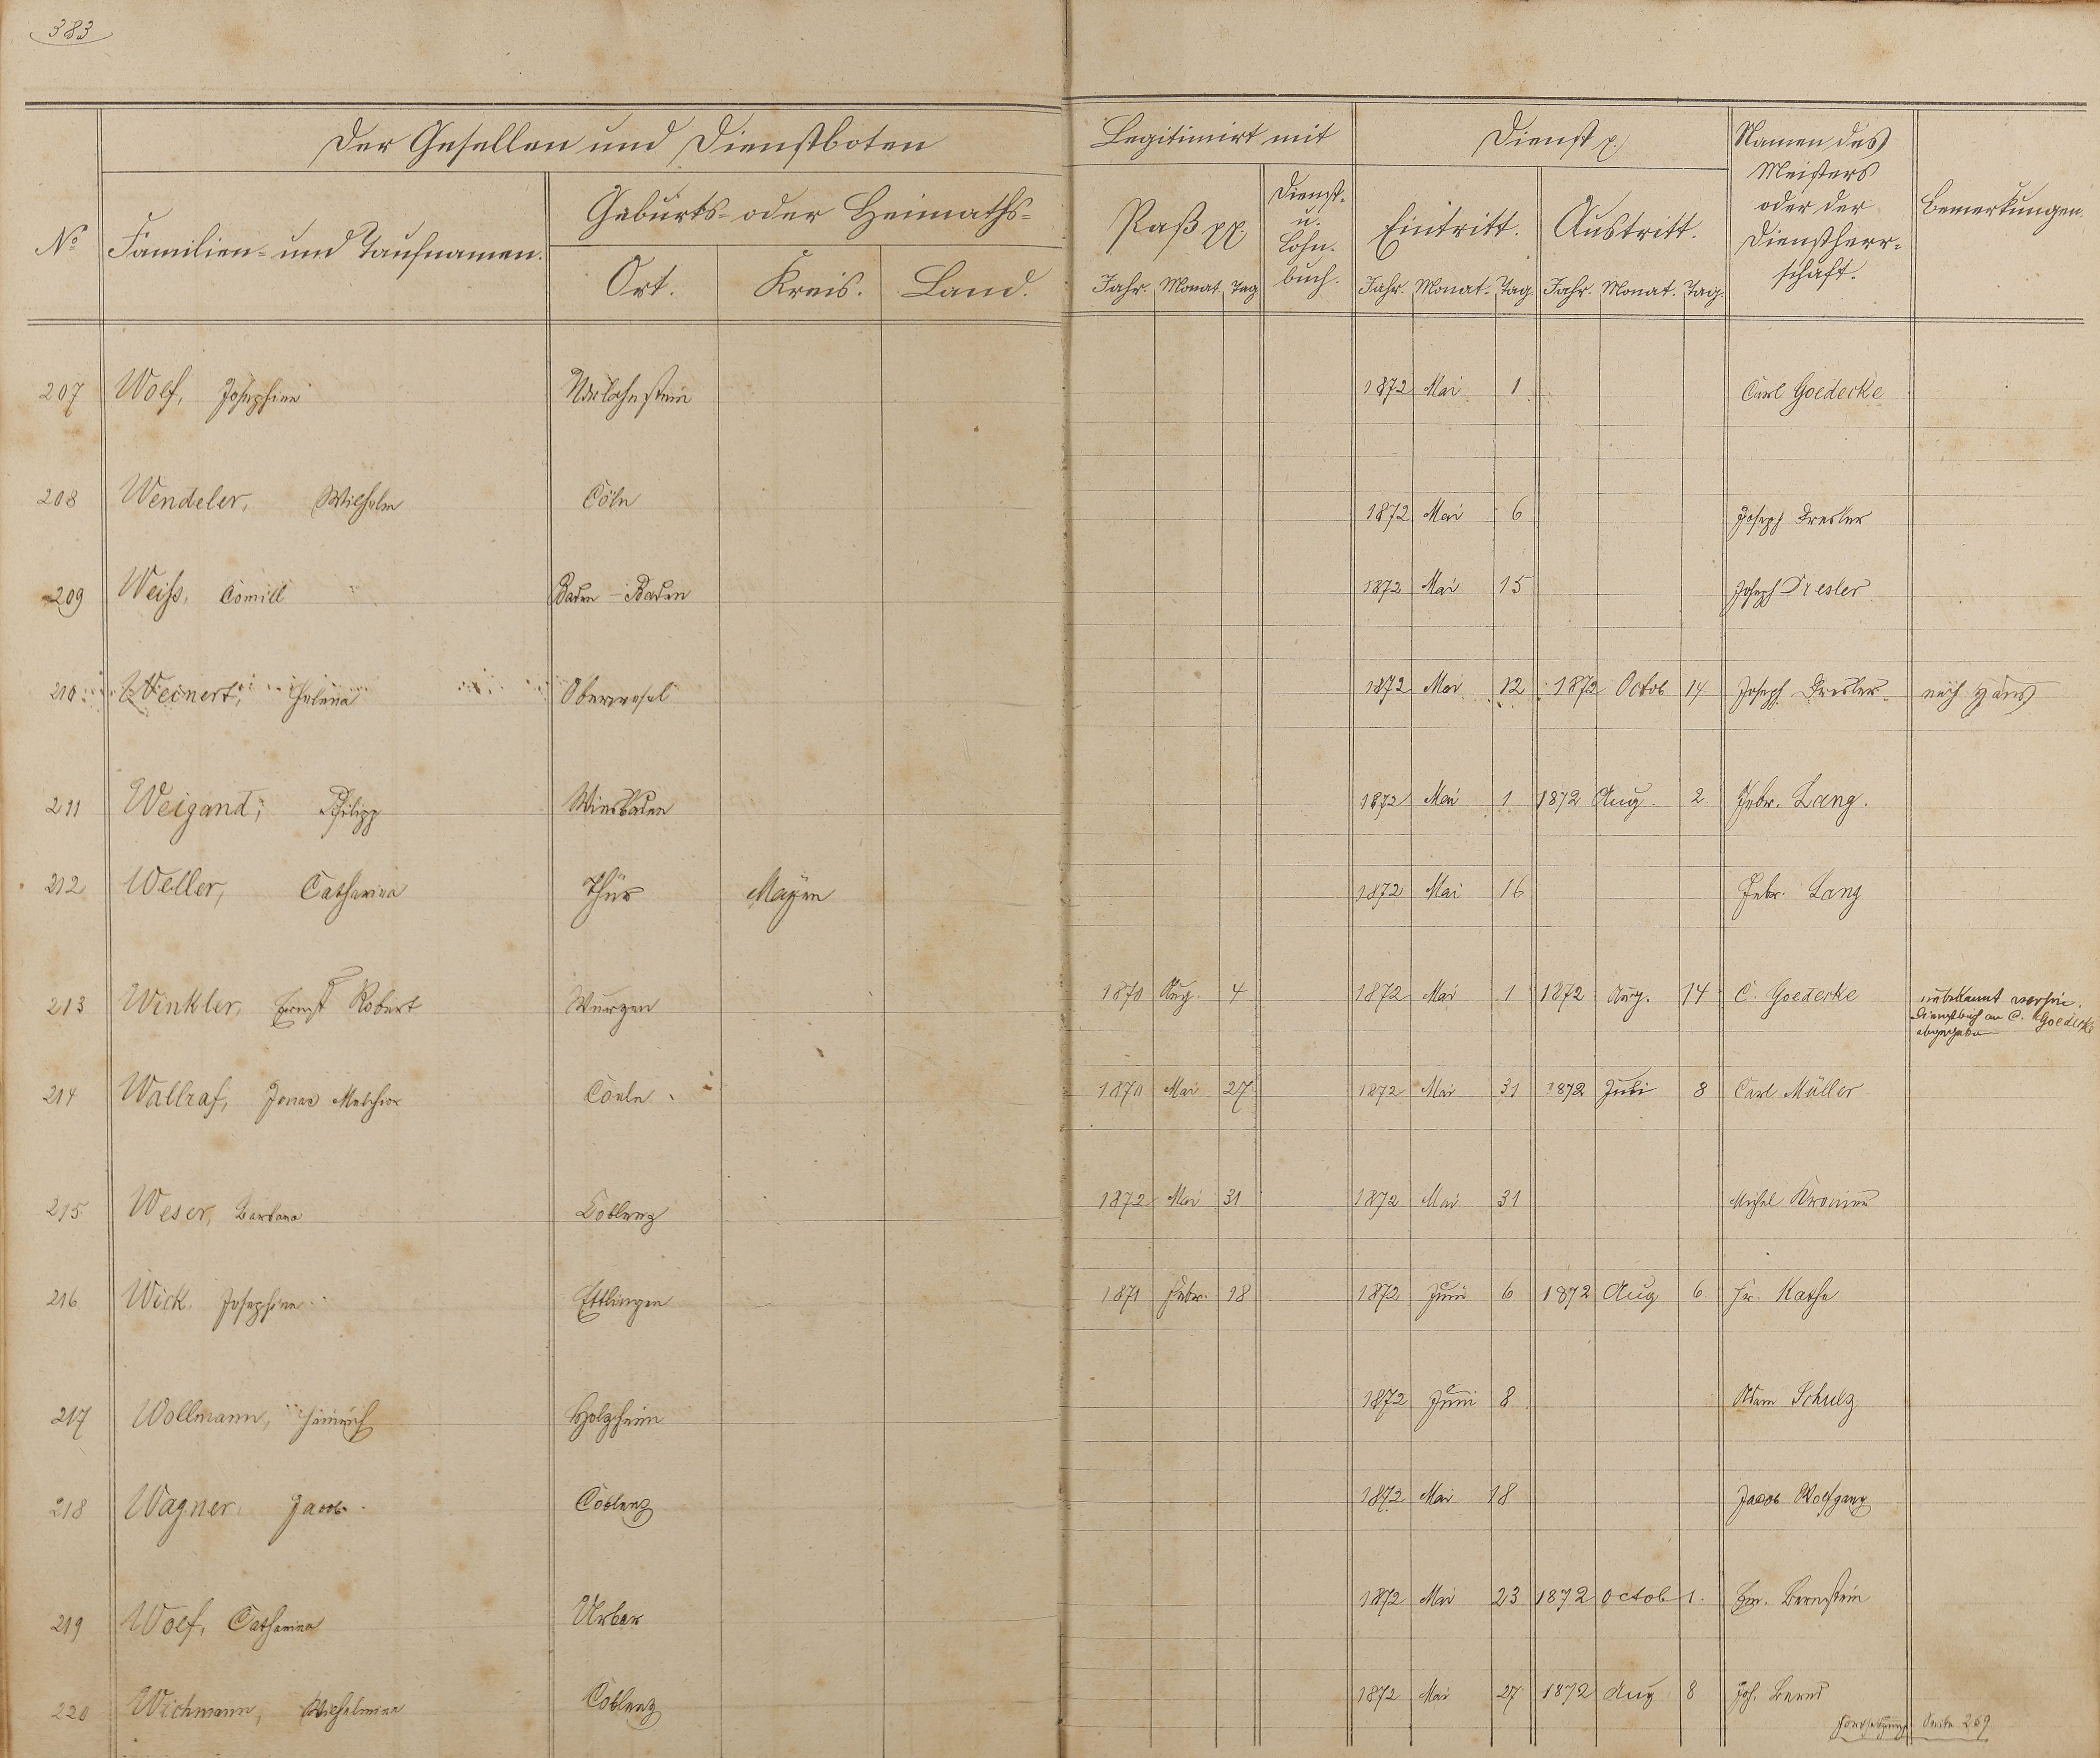 383
Der Gesellen und Dienstboten
Legitimirt mit
Dienst p.
Namen des
Meisters
oder der
Dienstherr-
schaft.
Bemerkungen.
No
Familien- und Taufnamen.
Geburts- oder Heimaths-
Ort. Kreis. Land.
Paß pp.
Dienst-
u.
Lohn-
buch.
Eintritt. Austritt.
Jahr. Monat. Tag Jahr. Monat. Tag. Jahr. Monat. Tag.
207 Wolf, Josephine 1872 Mai 1 Carl Goedecke
208 Wendeler, Wilhelm Cöln 1872 Mai 6 Joseph Dresler
209 Weiss, Baden-Baden 1872 Mai 15 Joseph Dresler
210 Weinert, Helena Oberwesel 1872 Mai 12 1872 Octob 14 Joseph Dresler nach Haus
211 Weigand, Philipp Wiesbaden 1872 Mai 1 1872 Aug. 2 Gebr. Lang.
212 Weller, Catharina Thür Mayen 1872 Mai 16 Gebr. Lang
213 Winkler, Ernst Robert Wurzen 1870 Aug. 4 1872 Mai 1 1872 Aug. 14 C. Goedecke unbekannt wohin.
Dienstbuch an C. Goedecke
abgegeben
214 Wallraf, Jonas Melchior Coeln 1870 Mai 27 1872 Mai 31 1872 Juli 8 Carl Müller
215 Weser, Barbara Coblenz 1872 Mai 31 1872 Mai 31 Michel
216 Wick. Josephine Ettlingen 1871 Febr. 18 1872 Juni 6 1872 Aug 6 Fr. Kathe
217 Wollmann, Heinrich Holzheim 1872 Juni 8 Adam Schulz
218 Wagner Jacob Coblenz 1872 Mai 18 Jacob Wolfgang
219 Wolf, Catharina Urbar 1872 Mai 23 1872 Octob 1. Bernstein
220 Wichmann, Wilhelmine Coblenz 1872 Mai 27 1872 Aug 8 Joh. Bernd
Fortsetzung Seite 259